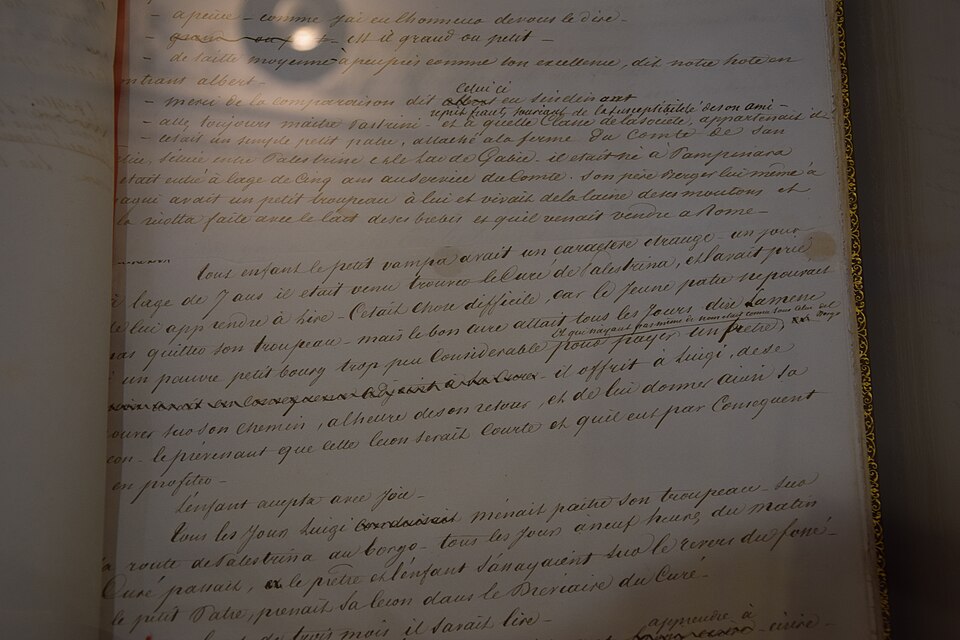 - apeine - comme j'ai eu lhonneur de vous le dire -
- est il grand ou petit -
- de taille moyenne à peuprès comme son excellence, dit notre hote en
ntrant albert -
Celui ci
- merci de la comparaison dit en sinclinant
reprit frantz, souriant de la susceptibilité de son ami -
- allez toujours maitre Pastrini - et à quelle Classe de la société, appartenait il
- cetait un simple petit patre, attaché à la ferme du Comte de San
lice, située entre Palestrine et le lac de Gabie - il etait né à Pampinara
etait entré à lage de Cinq ans au service du Comte. Son père Berger lui même à
nagni avait un petit troupeau à lui et vivait de la laine de ses moutons et
la ricotta faite avec le lait de ses brebis et quil venait vendre a Rome -
tout enfant le petit vampa avait un caractère etrange - un jour
à lage de 7 ans il etait venu trouver le Curé de Palestrina, et lavait prié
de lui apprendre à lire - Cetait chose difficile, car le Jeune patre ne pouvait
pas quitter son troupeau - mais le bon curé allait tous les Jours dire la messe
à un pauvre petit bourg trop peu Considerable pour payer un pretre,
et qui nayant pas meme de nom etait connu sous celui del Borgo
il offrit à Luigi, de se
ouver sur son chemin, a lheure de son retour, et de lui donner ainsi sa
con - le prévenant que cette lecon serait Courte et quil eut par Consequent
en profiter -
Lenfant accepta avec Joie -
Tous les Jour Luigi menait paitre son troupeau sur
la route de Palestrina au borgo - tous les Jour a neuf heures du matin
Curé passait, le prêtre et lenfant sasseyaient sur le revers du fossé -
le petit Patre, prenait sa lecon dans le Breviaire du Curé -
de trois mois il savait lire -
apprendre à